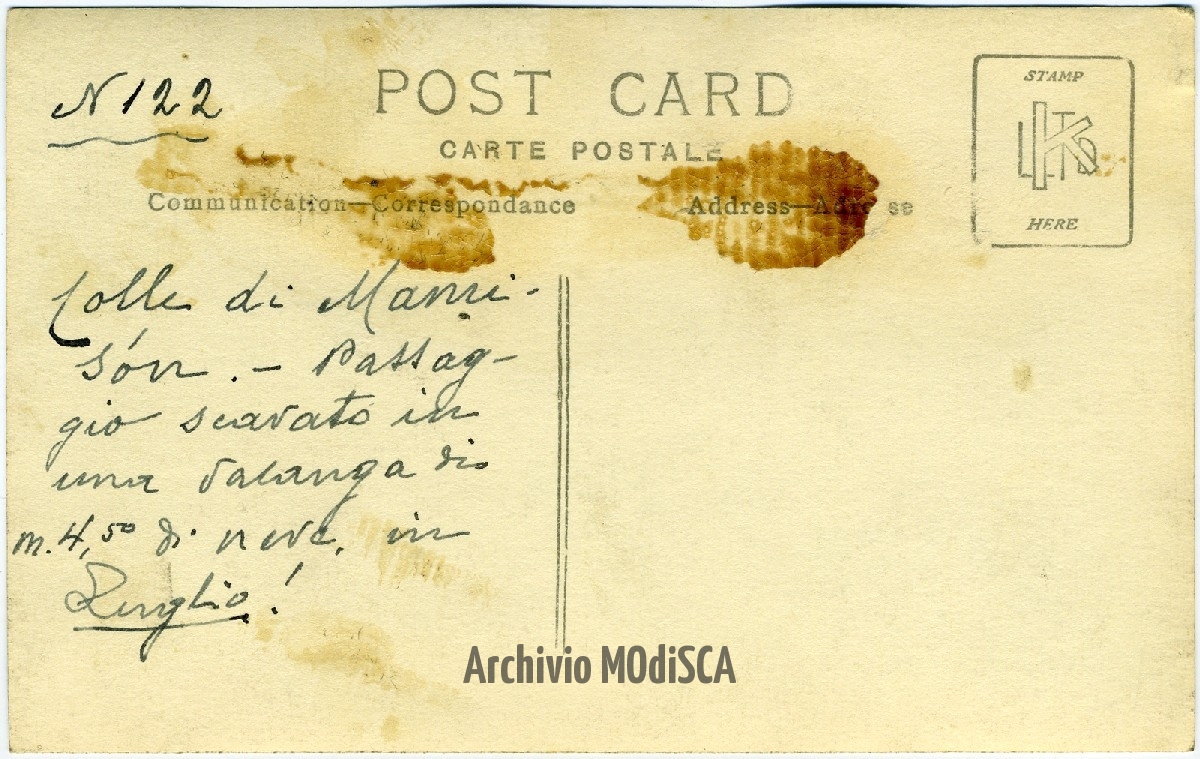 N 122
POST CARD
CARTE POSTALE
Communication—Correspondance
Address—Adresse
STAMP
HERE
Colle di Mami-
són. — Passag-
gio scavato in
una valanga di
m. 4,50 di neve, in
Luuglio!
Archivio MOdiSCA